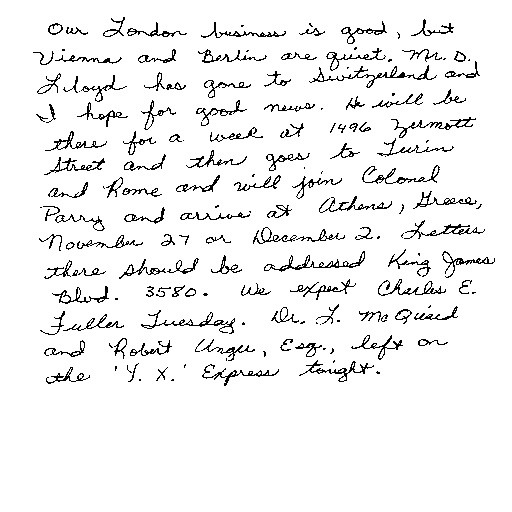 Our London business is good, but
Vienna and Berlin are quiet. Mr. D.
Lloyd has gone to Switzerland and
I hope for good news. He will be
there for a week at 1496 Zermott
Street and then goes to Turin
and Rome and will join Colonel
Parry and arrive at Athens, Greece,
November 27 or December 2. Letters
there should be addressed King James
Blvd. 3580. We expect Charles E.
Fuller Tuesday. Dr. L. McQuaid
and Robert Unger, Esq., left on
the 'Y. X.' Express tonight.